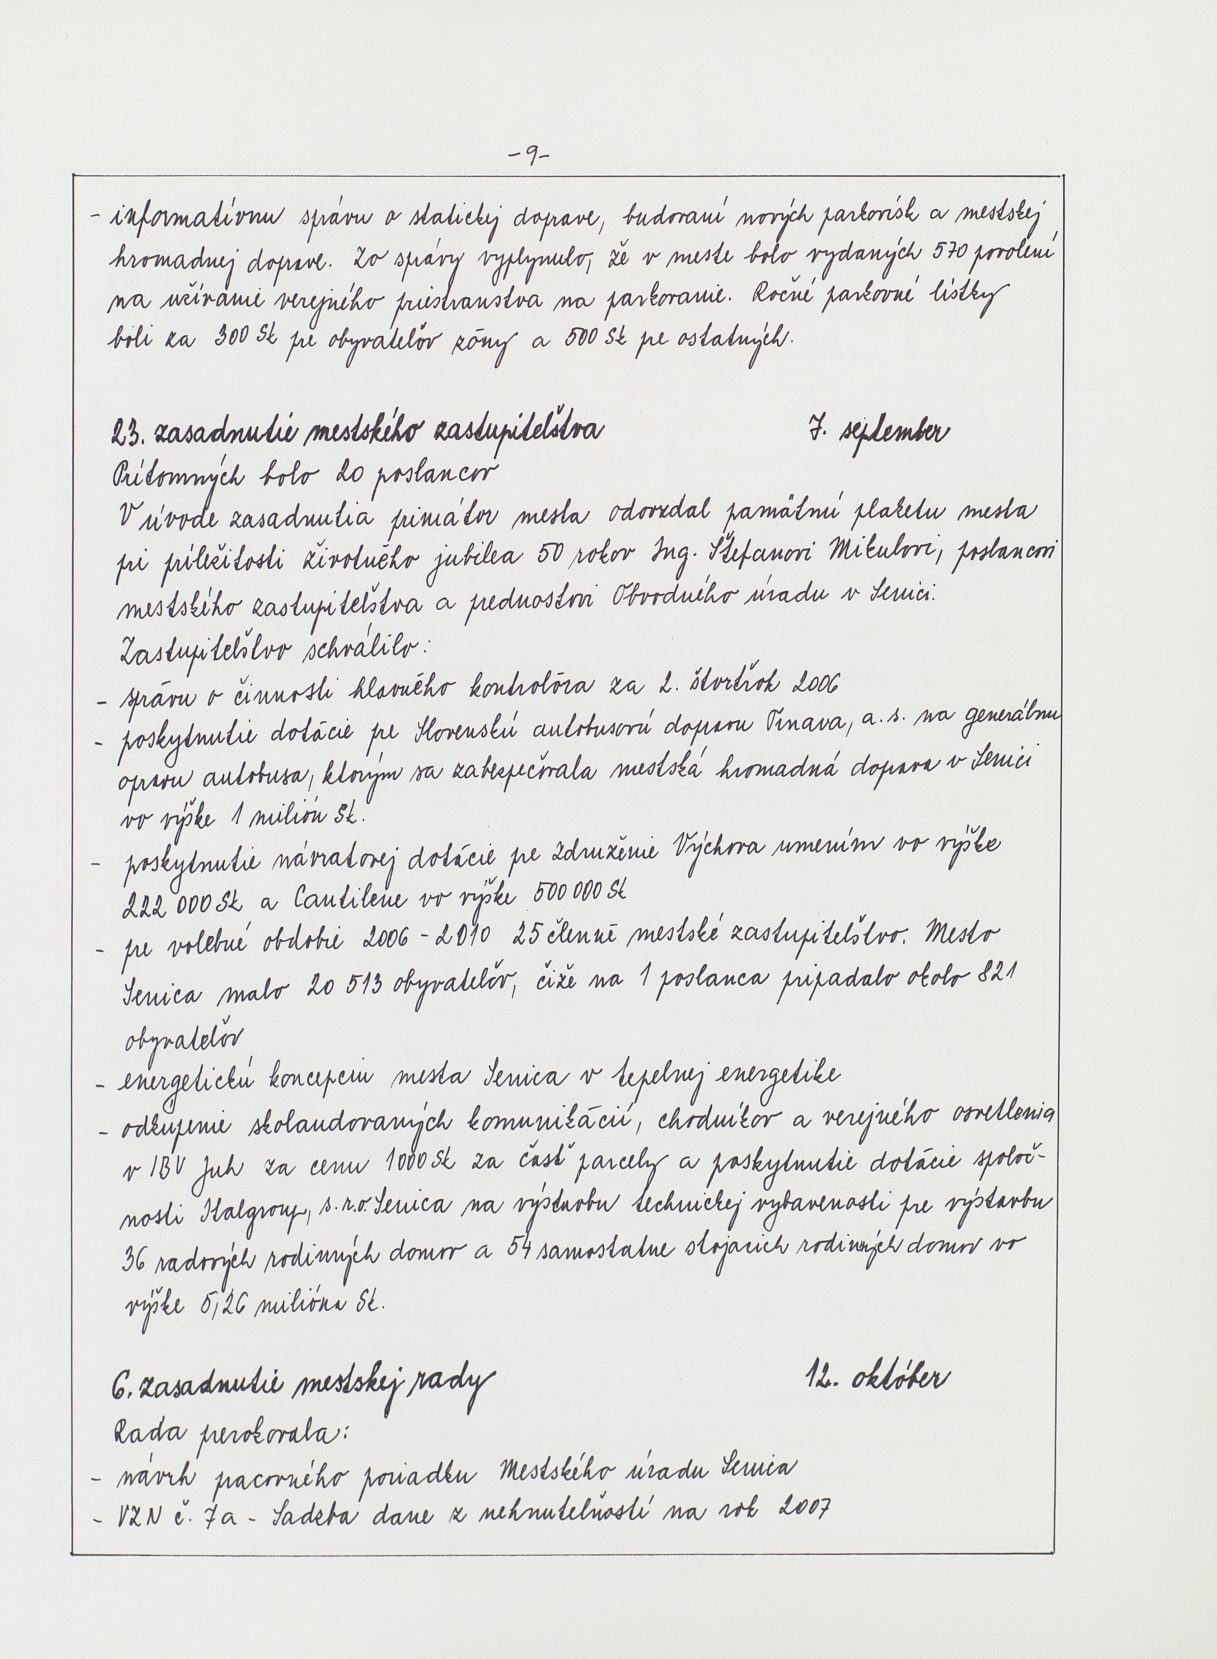 -9-
- informatívnu správu o statickej doprave, budovaní nových parkovísk a mestskej
hromadnej doprave. Zo správy vyplynulo, že v meste bolo vydaných 570 povolení
na užívanie verejného priestranstva na parkovanie. Ročné parkovné lístky
boli za 300 Sk pre obyvateľov zóny a 500 Sk pre ostatných.
23. zasadnutie mestského zastupiteľstva 7. september
Prítomných bolo 20 poslancov
V úvode zasadnutia primátor mesta odovzdal pamätnú plaketu mesta
pri príležitosti životného jubilea 50 rokov Ing. Štefanovi Mikulovi, poslancovi
mestského zastupiteľstva a prednostovi Obvodného úradu v Senici.
Zastupiteľstvo schválilo:
- správu o činnosti hlavného kontrolóra za 2. štvrťrok 2006
- poskytnutie dotácie pre Slovenskú autobusovú dopravu Trnava, a.s. na generálnu
opravu autobusa, ktorým sa zabezpečovala mestská hromadná doprava v Senici
vo výške 1 milión Sk.
- poskytnutie návratovej dotácie pre Združenie Výchova umením vo výške
222 000 Sk a Cantilene vo výške 500 000 Sk
- pre volebné obdobie 2006 - 2010 25 členné mestské zastupiteľstvo. Mesto
Senica malo 20 513 obyvateľov, čiže na 1 poslanca pripadalo okolo 821
obyvateľov
- energetickú koncepciu mesta Senica v tepelnej energetike
- odkupenie skolaudovaných komunikácií, chodníkov a verejného osvetlenia
v IBV Juh za cenu 1000 Sk za časť parcely a poskytnutie dotácie spoloč-
nosti Italgroup, s.r.o. Senica na výstavbu technickej vybavenosti pre výstavbu
36 radových rodinných domov a 54 samostatne stojacich rodinných domov vo
výške 5,26 milióna Sk.
6. zasadnutie mestskej rady 12. október
Rada prerokovala:
- návrh pracovného poriadku Mestského úradu Senica
- VZN č. 7a - Sadzba dane z nehnuteľností na rok 2007